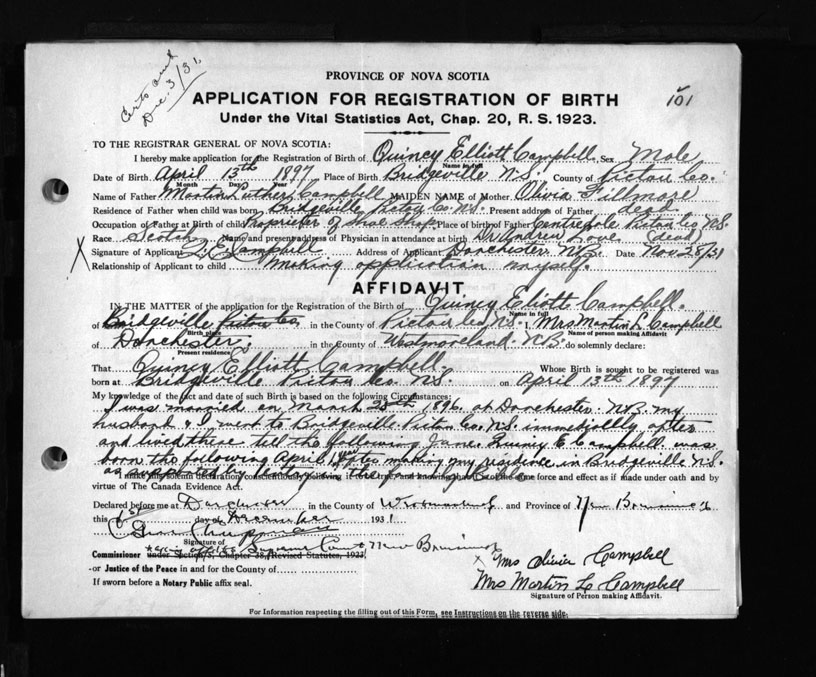 Certs sent
Dec. 3/31.
PROVINCE OF NOVA SCOTIA
APPLICATION FOR REGISTRATION OF BIRTH
101
Under the Vital Statistics Act, Chap. 20, R. S. 1923.
TO THE REGISTRAR GENERAL OF NOVA SCOTIA:
I hereby make application for the Registration of Birth of Quincy Elliott Campbell Sex Male
Name in full
Date of Birth April 13th 1897 Place of Birth Bridgeville N.S. County of Pictou Co.
Month Day Year
Name of Father Martin Luther Campbell MAIDEN NAME of Mother Olivia Fillmore
Residence of Father when child was born Bridgeville Pictou Co. N.S. Present address of Father dead
Occupation of Father at Birth of child Proprietor of Shoe Shop Place of Birth of Father Centredale Pictou Co N.S.
Race Scotch Name and present address of Physician in attendance at birth Dr. Andrew Love (dead)
X Signature of Applicant Q. E. Campbell Address of Applicant Dorchester N.B. Date Nov 28/31
Relationship of Applicant to child making application myself.
AFFIDAVIT
IN THE MATTER of the application for the Registration of the Birth of Quincy Elliott Campbell.
Name in full
of Bridgeville Pictou Co in the County of Pictou Co. N.S. I, Mrs Martin L Campbell
Birth place Name of person making Affidavit
of Dorchester in the County of Westmoreland N.B. do solemnly declare:
Present residence
That Quincy Elliott Campbell. Whose Birth is sought to be registered was
born at Bridgeville Pictou Co. N.S. on April 13th 1897
My knowledge of the fact and date of such Birth is based on the following Circumstances:
I was married on March 25th 1896 at Dorchester N.B. my
husband & I went to Bridgeville Pictou Co. N.S. immediatlly after
and lived there till the following June. Quincy E. Campbell was
born the following April after making my residence in Bridgeville N.S.
as supported by history in the family Bible
I make this solemn declaration conscientiously believing it true and knowing that it is of the same force and effect as if made under oath and by
virtue of The Canada Evidence Act.
Declared before me at Dorchester in the County of Westmorland and Province of New Brunswick
this 1st day of December 1931
Chapman
Signature of
Commissioner under Section 5, Chapter 38, Revised Statutes, 1923 Supreme Court New Brunswick
X Mrs Olivia Campbell
-or Justice of the Peace in and for the County of
Mrs Martin L Campbell
If sworn before a Notary Public affix seal.
Signature of Person making Affidavit.
For Information respecting the filling out of this Form, see Instructions on the reverse side.